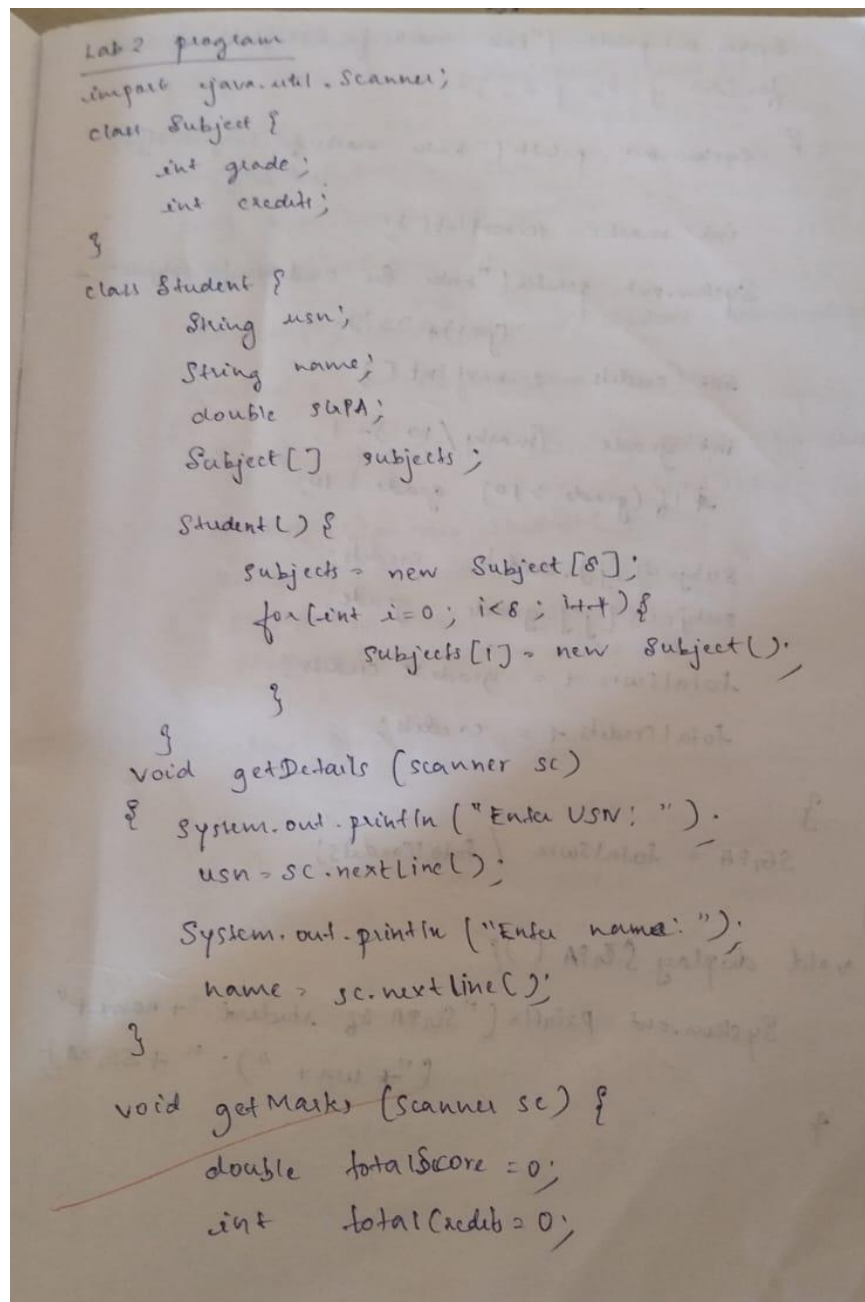 Lab 2 program
import java.util.Scanner;
class Subject {
int grade;
int credits;
}
class Student {
String usn;
String name;
double SGPA;
Subject[] subjects;
Student() {
subjects = new Subject[8];
for(int i=0; i<8; i++) {
subjects[i] = new Subject();
}
}
void getDetails (scanner sc)
{ System.out.println ("Enter USN: ");
usn = sc.nextLine();
System.out.println ("Enter name: ");
name = sc.nextLine();
}
void getMarks (scanner sc) {
double totalScore = 0;
int totalCredits = 0;